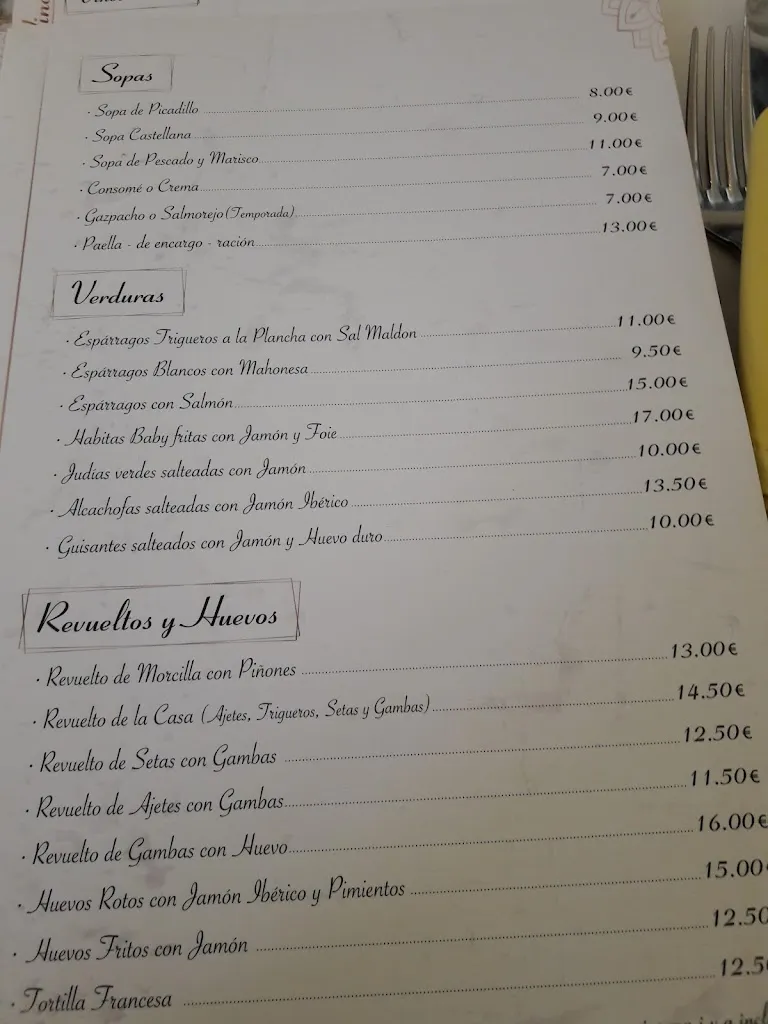 Sopas
· Sopa de Picadillo 8.00€
· Sopa Castellana 9.00€
· Sopa de Pescado y Marisco 11.00€
· Consomé o Crema 7.00€
· Gazpacho o Salmorejo (Temporada) 7.00€
· Paella - de encargo - ración 13.00€
Verduras
· Espárragos Trigueros a la Plancha con Sal Maldon 11.00€
· Espárragos Blancos con Mahonesa 9.50€
· Espárragos con Salmón 15.00€
· Habitas Baby fritas con Jamón y Foie 17.00€
· Judías verdes salteadas con Jamón 10.00€
· Alcachofas salteadas con Jamón Ibérico 13.50€
· Guisantes salteados con Jamón y Huevo duro 10.00€
Revueltos y Huevos
· Revuelto de Morcilla con Piñones 13.00€
· Revuelto de la Casa (Ajetes, Trigueros, Setas y Gambas) 14.50€
· Revuelto de Setas con Gambas 12.50€
· Revuelto de Ajetes con Gambas 11.50€
· Revuelto de Gambas con Huevo 16.00€
· Huevos Rotos con Jamón Ibérico y Pimientos 15.00
· Huevos Fritos con Jamón 12.50
· Tortilla Francesa 12.5